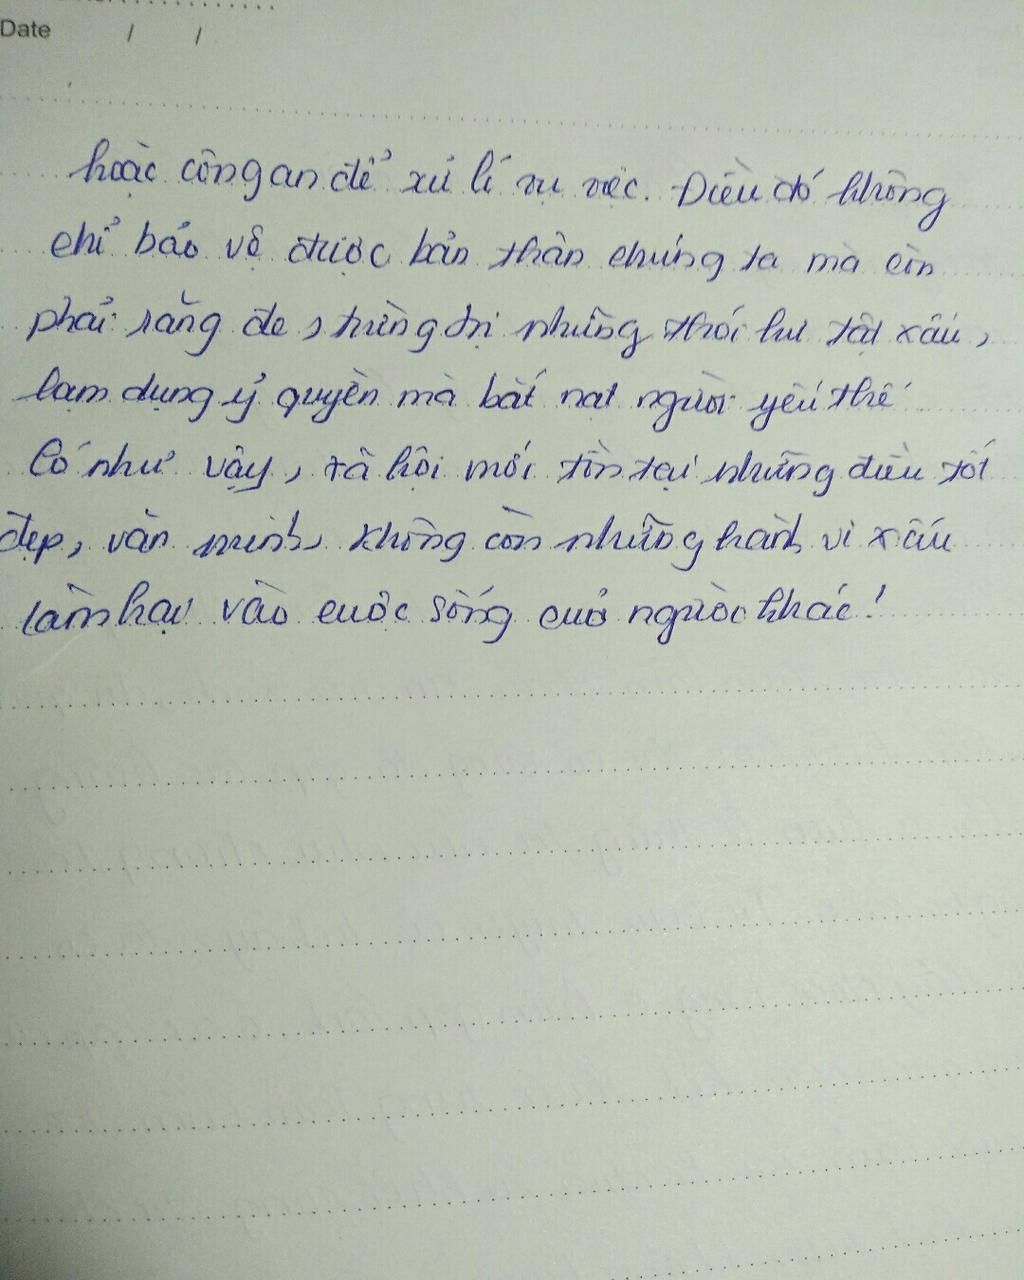 Date / /
hoặc công an để xử lí vụ việc. Điều đó không
chỉ bảo vệ được bản thân chúng ta mà còn
phải răng đe, trừng trị những thói hư tật xấu,
lạm dụng ỷ quyền mà bắt nạt người yếu thế
Có như vậy, xã hội mới tồn tại những điều tốt
đẹp, văn minh, không còn những hành vi xấu
làm hại vào cuộc sống của người khác!